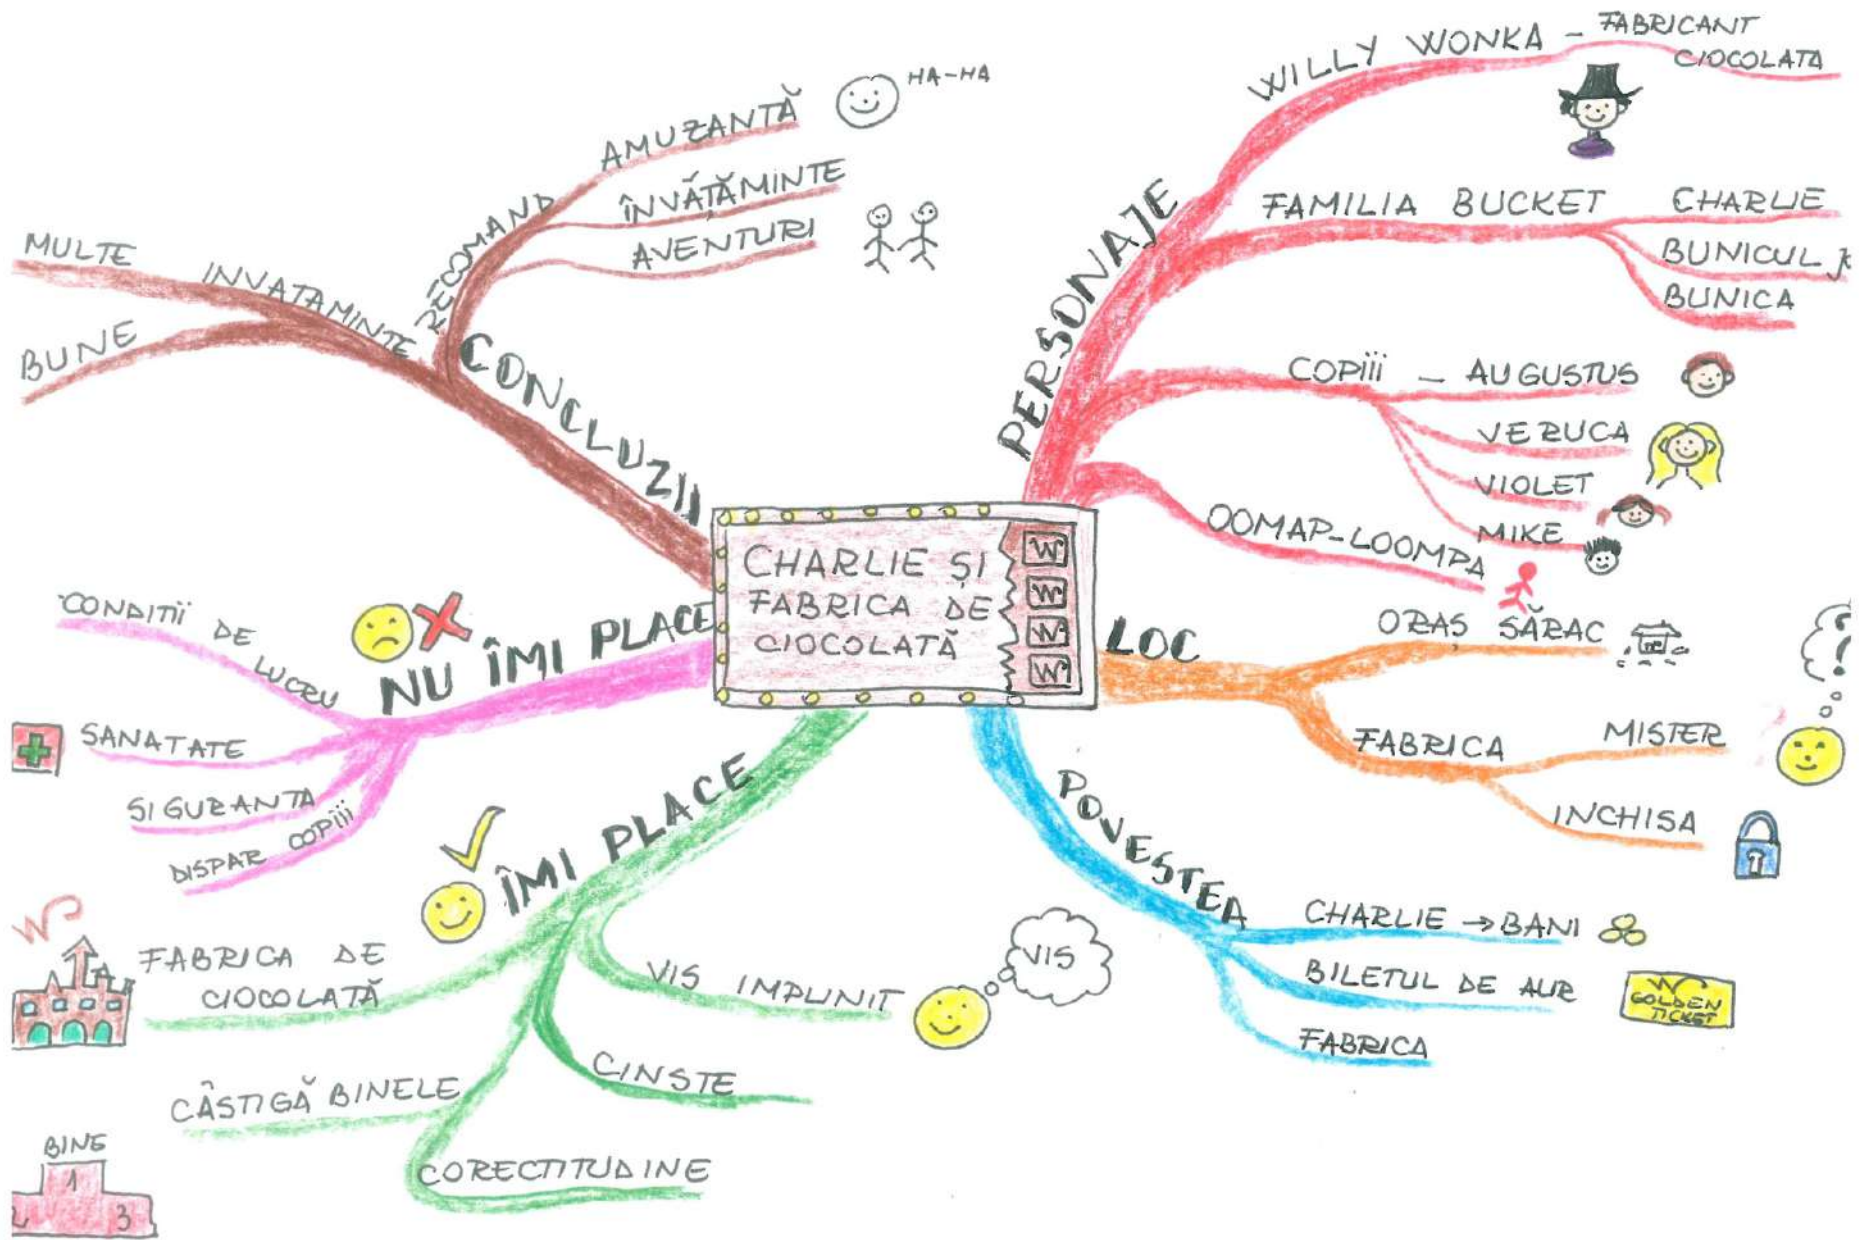 CHARLIE ȘI
FABRICA DE
CIOCOLATĂ
W
W
W
W
PERSONAJE
WILLY WONKA – FABRICANT
CIOCOLATA
FAMILIA BUCKET
CHARLIE
BUNICUL
BUNICA
COPIII – AUGUSTUS
VERUCA
VIOLET
MIKE
OOMAP-LOOMPA
LOC
ORAȘ SĂRAC
FABRICA
MISTER
?!
INCHISA
POVESTEA
CHARLIE → BANI
BILETUL DE AUR
W
GOLDEN
TICKET
FABRICA
ÎMI PLACE
VIS IMPLINIT
VIS
CINSTE
CORECTITUDINE
CÂSTIGĂ BINELE
BINE
1
2
3
FABRICA DE
CIOCOLATĂ
W
NU ÎMI PLACE
CONDITII DE
LUCRU
SANATATE
SIGURANTA
DISPAR COPIII
CONCLUZII
INVATAMINTE
MULTE
BUNE
RECOMAND
AMUZANTĂ
HA-HA
ÎNVĂȚĂMINTE
AVENTURI